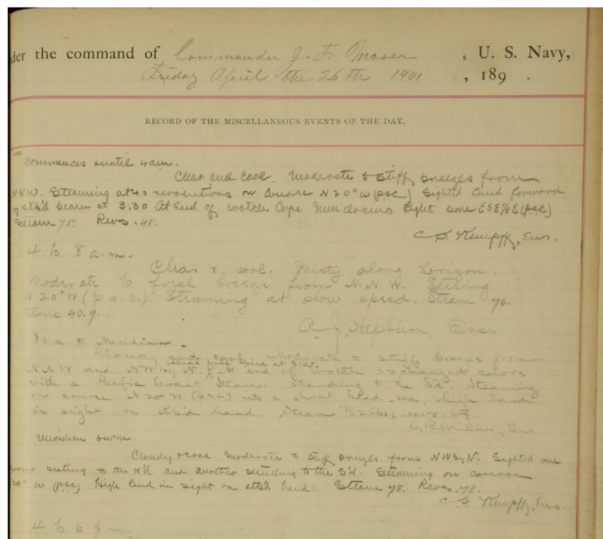 der the command of Commander J. F. Moser, U. S. Navy,
Friday April the 26th 1901, 189 .
RECORD OF THE MISCELLANEOUS EVENTS OF THE DAY.
Commences until
Clear and cool. Moderate to stiff breezes from
NNW. Steaming at revolutions on course N20°W (psc) Sighted land forward
of stb'd beam at 3:30 At End of watch Cape Mendocino Light bore (psc)
Steam 75. Revs. 48.
C. S. Kempff, Ens.
4 to 8 a.m.
Clear & cool. Misty along horizon.
Moderate to fresh breeze from N.N.W. Steering
N20°W (p.s.c.) Steaming at slow speed. Steam 70.
Revs 40.9.
A. J. Hepburn Ens
to Meridian.
Cloudy and cool. Moderate to stiff breezes from
NNW and NW by N. end of watch exchanged colors
with a Pacific Steamer standing to the Steaming
on course N20°W (psc) into a short head sea, high land
in sight on stb'd hand. Steam revs.
Miller, Ens.
Meridian
Cloudy & cool. Moderate to stiff breezes from NW by N. Sighted one
to the and another standing to the S'd. Steaming on course
W (psc) High land in sight on stbd hand. Steam 78. Revs. 78.
C. S. Kempff, Ens.
4 to 6 p.m.